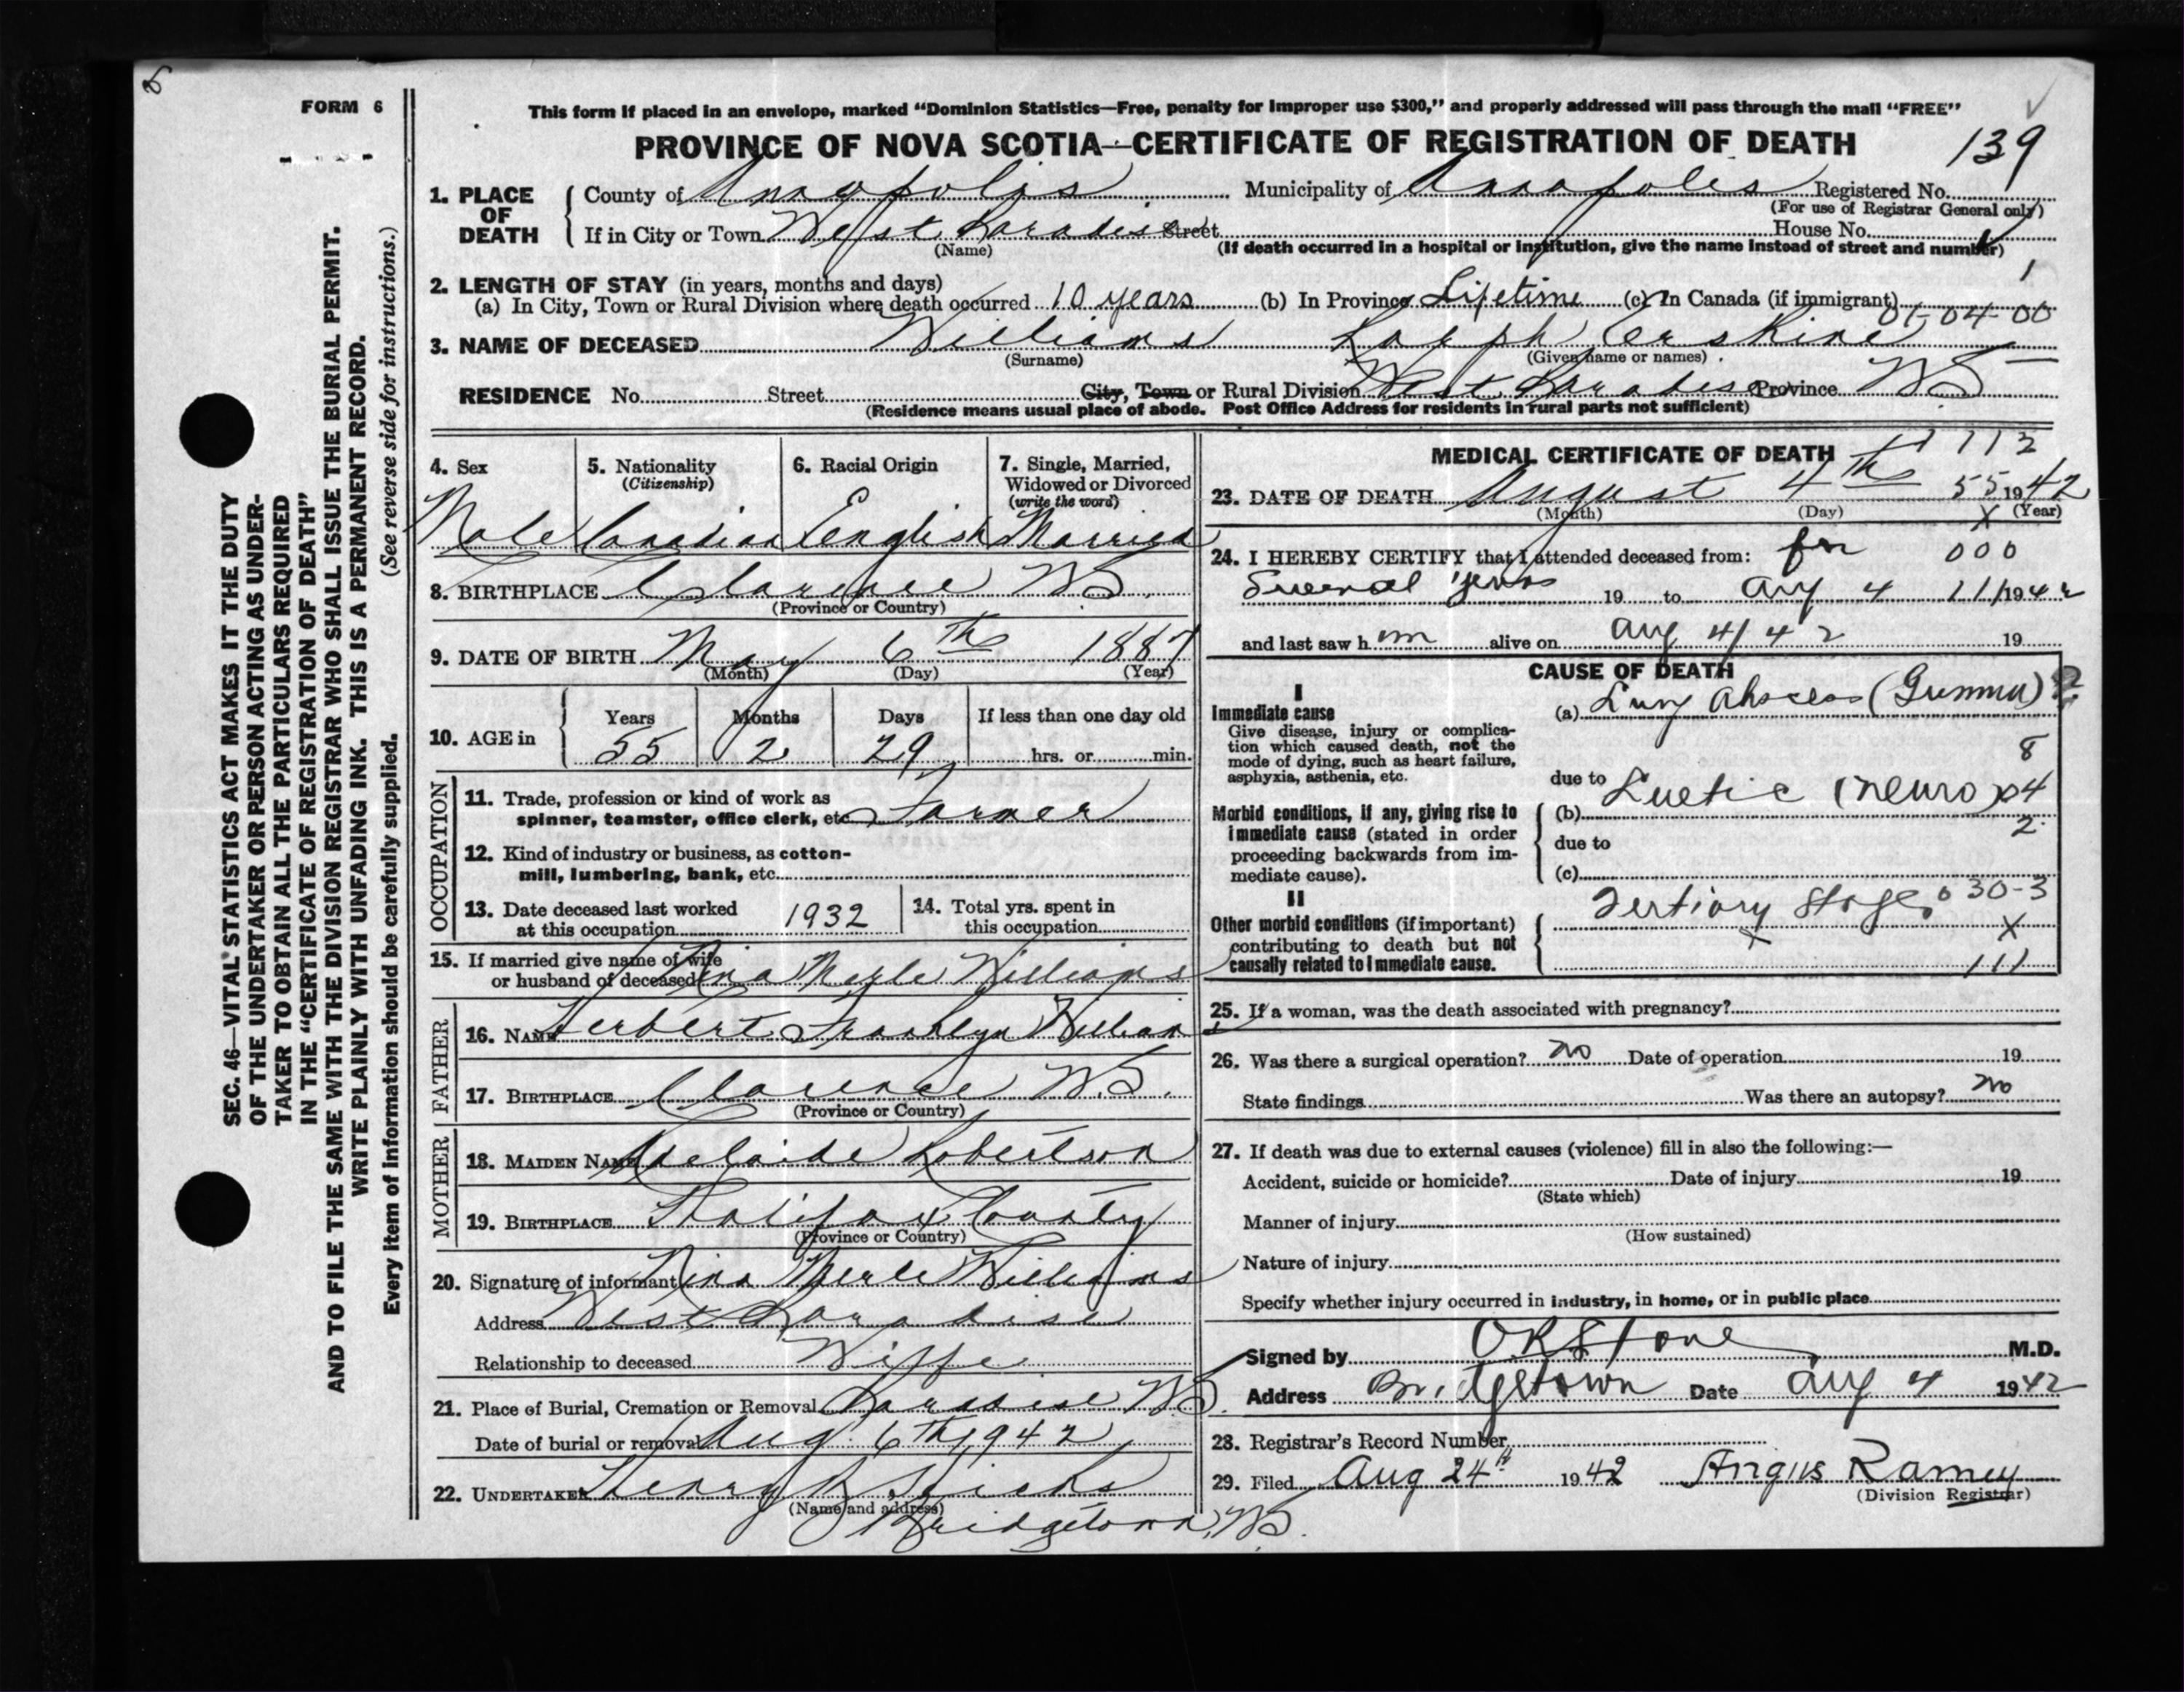 FORM 6
This form if placed in an envelope, marked "Dominion Statistics—Free, penalty for improper use $300," and properly addressed will pass through the mail "FREE"
PROVINCE OF NOVA SCOTIA—CERTIFICATE OF REGISTRATION OF DEATH
139
1. PLACE OF DEATH
County of Annapolis Municipality of Annapolis Registered No.
(For use of Registrar General only)
If in City or Town West Paradise Street House No.
(Name) (If death occurred in a hospital or institution, give the name instead of street and number)
1
2. LENGTH OF STAY (in years, months and days)
(a) In City, Town or Rural Division where death occurred 10 years (b) In Province Lifetime (c) In Canada (if immigrant)
01-04-00
3. NAME OF DECEASED Williams Ralph Erskine
(Surname) (Given name or names)
RESIDENCE No. Street City, Town or Rural Division West Paradise Province NS
(Residence means usual place of abode. Post Office Address for residents in rural parts not sufficient)
4. Sex 5. Nationality (Citizenship) 6. Racial Origin 7. Single, Married, Widowed or Divorced (write the word)
Male Canadian English Married
8. BIRTHPLACE Clarence NS.
(Province or Country)
9. DATE OF BIRTH May 6th 1887
(Month) (Day) (Year)
10. AGE in
Years Months Days If less than one day old
55 2 29 hrs. or min.
OCCUPATION
11. Trade, profession or kind of work as
spinner, teamster, office clerk, etc. Farmer
12. Kind of industry or business, as cotton-
mill, lumbering, bank, etc.
13. Date deceased last worked
at this occupation 1932
14. Total yrs. spent in
this occupation
15. If married give name of wife
or husband of deceased Nina Merle Williams
FATHER
16. NAME Herbert Franklyn Williams
17. BIRTHPLACE Clarence N.S.
(Province or Country)
MOTHER
18. MAIDEN NAME Adelaide Robertson
19. BIRTHPLACE Halifax County
(Province or Country)
20. Signature of informant Nina Merle Williams
Address West Paradise
Relationship to deceased Wiffe
21. Place of Burial, Cremation or Removal Paradise NS.
Date of burial or removal Aug. 6th 1942
22. UNDERTAKER Henry B Hicks
(Name and address)
Bridgetown, NS.
MEDICAL CERTIFICATE OF DEATH
23. DATE OF DEATH August 4th 55 1942
(Month) (Day) (Year)
X
24. I HEREBY CERTIFY that I attended deceased from: for 000
Several years 19 to Aug 4 1942
and last saw him alive on Aug 4/42 19
CAUSE OF DEATH
I
Immediate cause
Give disease, injury or complica-
tion which caused death, not the
mode of dying, such as heart failure,
asphyxia, asthenia, etc.
(a) Lung Abscess (Gumma) ?
8
due to
Morbid conditions, if any, giving rise to
immediate cause (stated in order
proceeding backwards from im-
mediate cause).
(b) Luetic (neuro)
2
due to
(c)
II
Other morbid conditions (if important)
contributing to death but not
causally related to immediate cause.
Tertiary Stage 030-3
X
111
25. If a woman, was the death associated with pregnancy?
26. Was there a surgical operation? no Date of operation 19
State findings Was there an autopsy? no
27. If death was due to external causes (violence) fill in also the following:—
Accident, suicide or homicide? Date of injury 19
(State which)
Manner of injury
(How sustained)
Nature of injury
Specify whether injury occurred in industry, in home, or in public place
Signed by O R Stone M.D.
Address Bridgetown Date Aug 4 1942
28. Registrar's Record Number
29. Filed Aug 24th 1942 Angus Ramey
(Division Registrar)
SEC. 46—VITAL STATISTICS ACT MAKES IT THE DUTY
OF THE UNDERTAKER OR PERSON ACTING AS UNDER-
TAKER TO OBTAIN ALL THE PARTICULARS REQUIRED
IN THE "CERTIFICATE OF REGISTRATION OF DEATH"
AND TO FILE THE SAME WITH THE DIVISION REGISTRAR WHO SHALL ISSUE THE BURIAL PERMIT.
WRITE PLAINLY WITH UNFADING INK. THIS IS A PERMANENT RECORD.
(See reverse side for instructions.)
Every item of information should be carefully supplied.